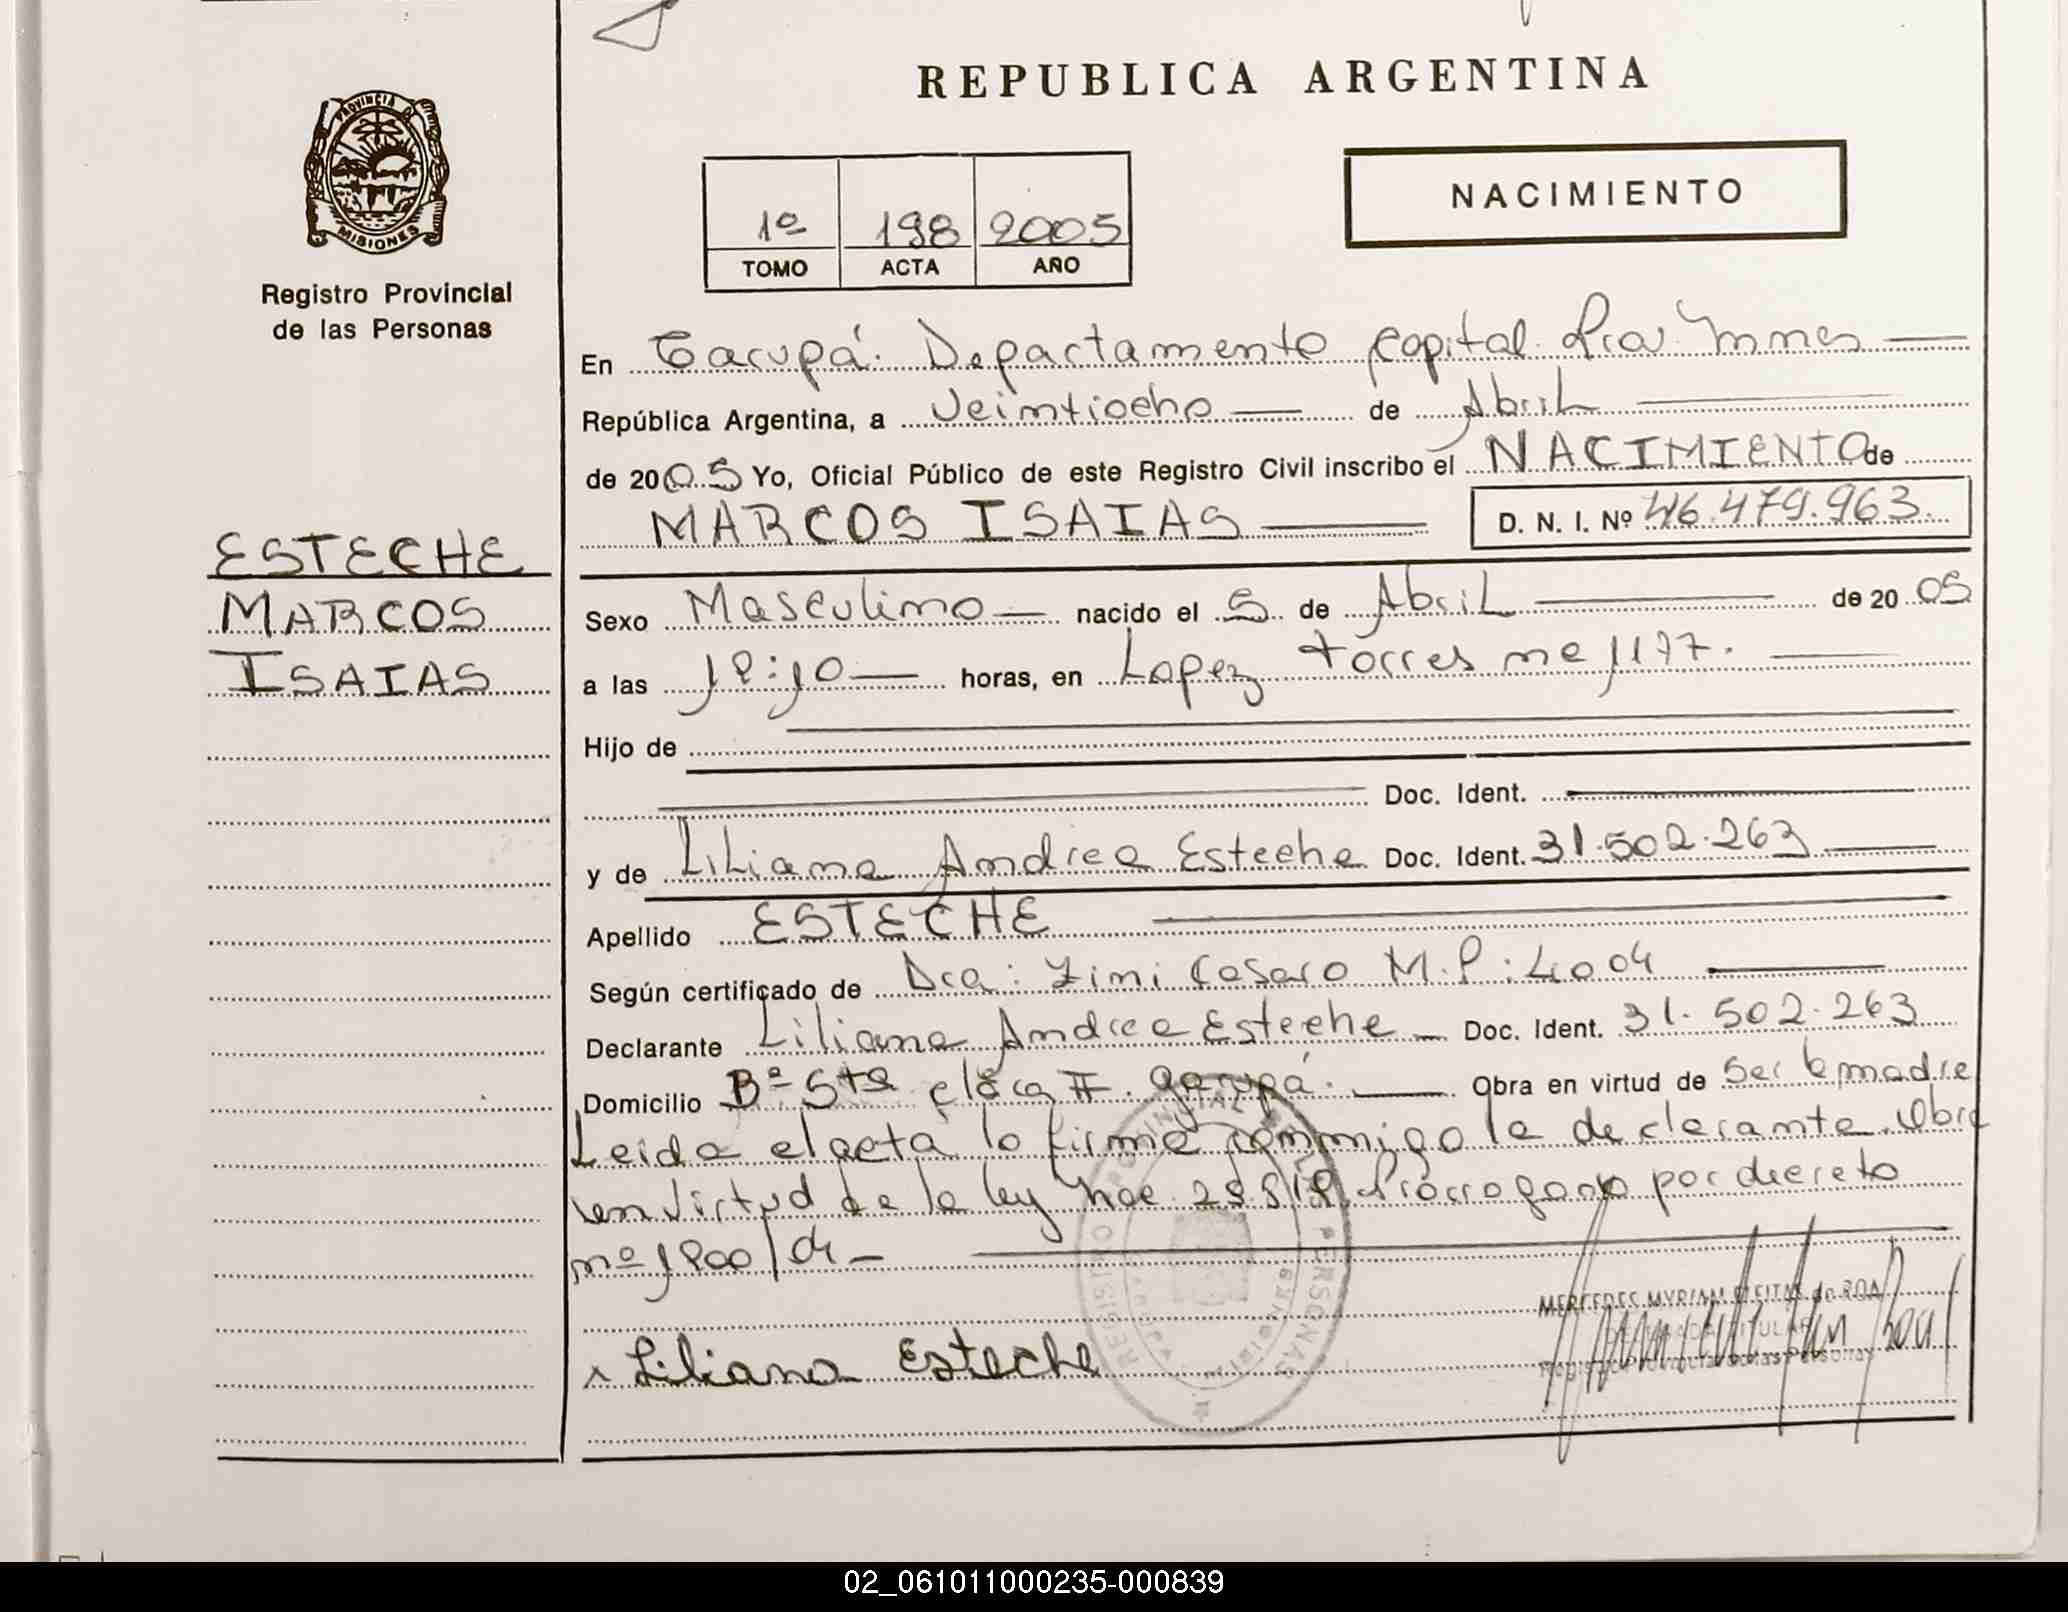 REPUBLICA ARGENTINA
PROVINCIA DE
MISIONES
Registro Provincial
de las Personas
NACIMIENTO
1º 198 2005
TOMO ACTA AÑO
En Garupá. Departamento Capital Pcia Mnes
República Argentina, a Veintiocho de Abril
de 2005 Yo, Oficial Público de este Registro Civil inscribo el NACIMIENTO de
MARCOS ISAIAS D. N. I. Nº 46.479.963.
ESTECHE
MARCOS
ISAIAS
Sexo Masculino nacido el 5 de Abril de 2005
a las 12:10 horas, en Lopez Torres nº 1177.
Hijo de
Doc. Ident.
y de Liliana Andrea Esteche Doc. Ident. 31.502.263
Apellido ESTECHE
Según certificado de Dra: Zini M.P: 4004
Declarante Liliana Andrea Esteche Doc. Ident. 31.502.263
Domicilio Bº Sta Garupá. Obra en virtud de Ser la madre
Leida el acta la firma conmigo la declarante. Obra
en virtud de la ley por decreto
nº 1200/04
MERCEDES MYRIAM de ROA
TITULAR
Registro Provincial de las Personas
Liliana Esteche
REGISTRO PROVINCIAL DE LAS PERSONAS
02_061011000235-000839